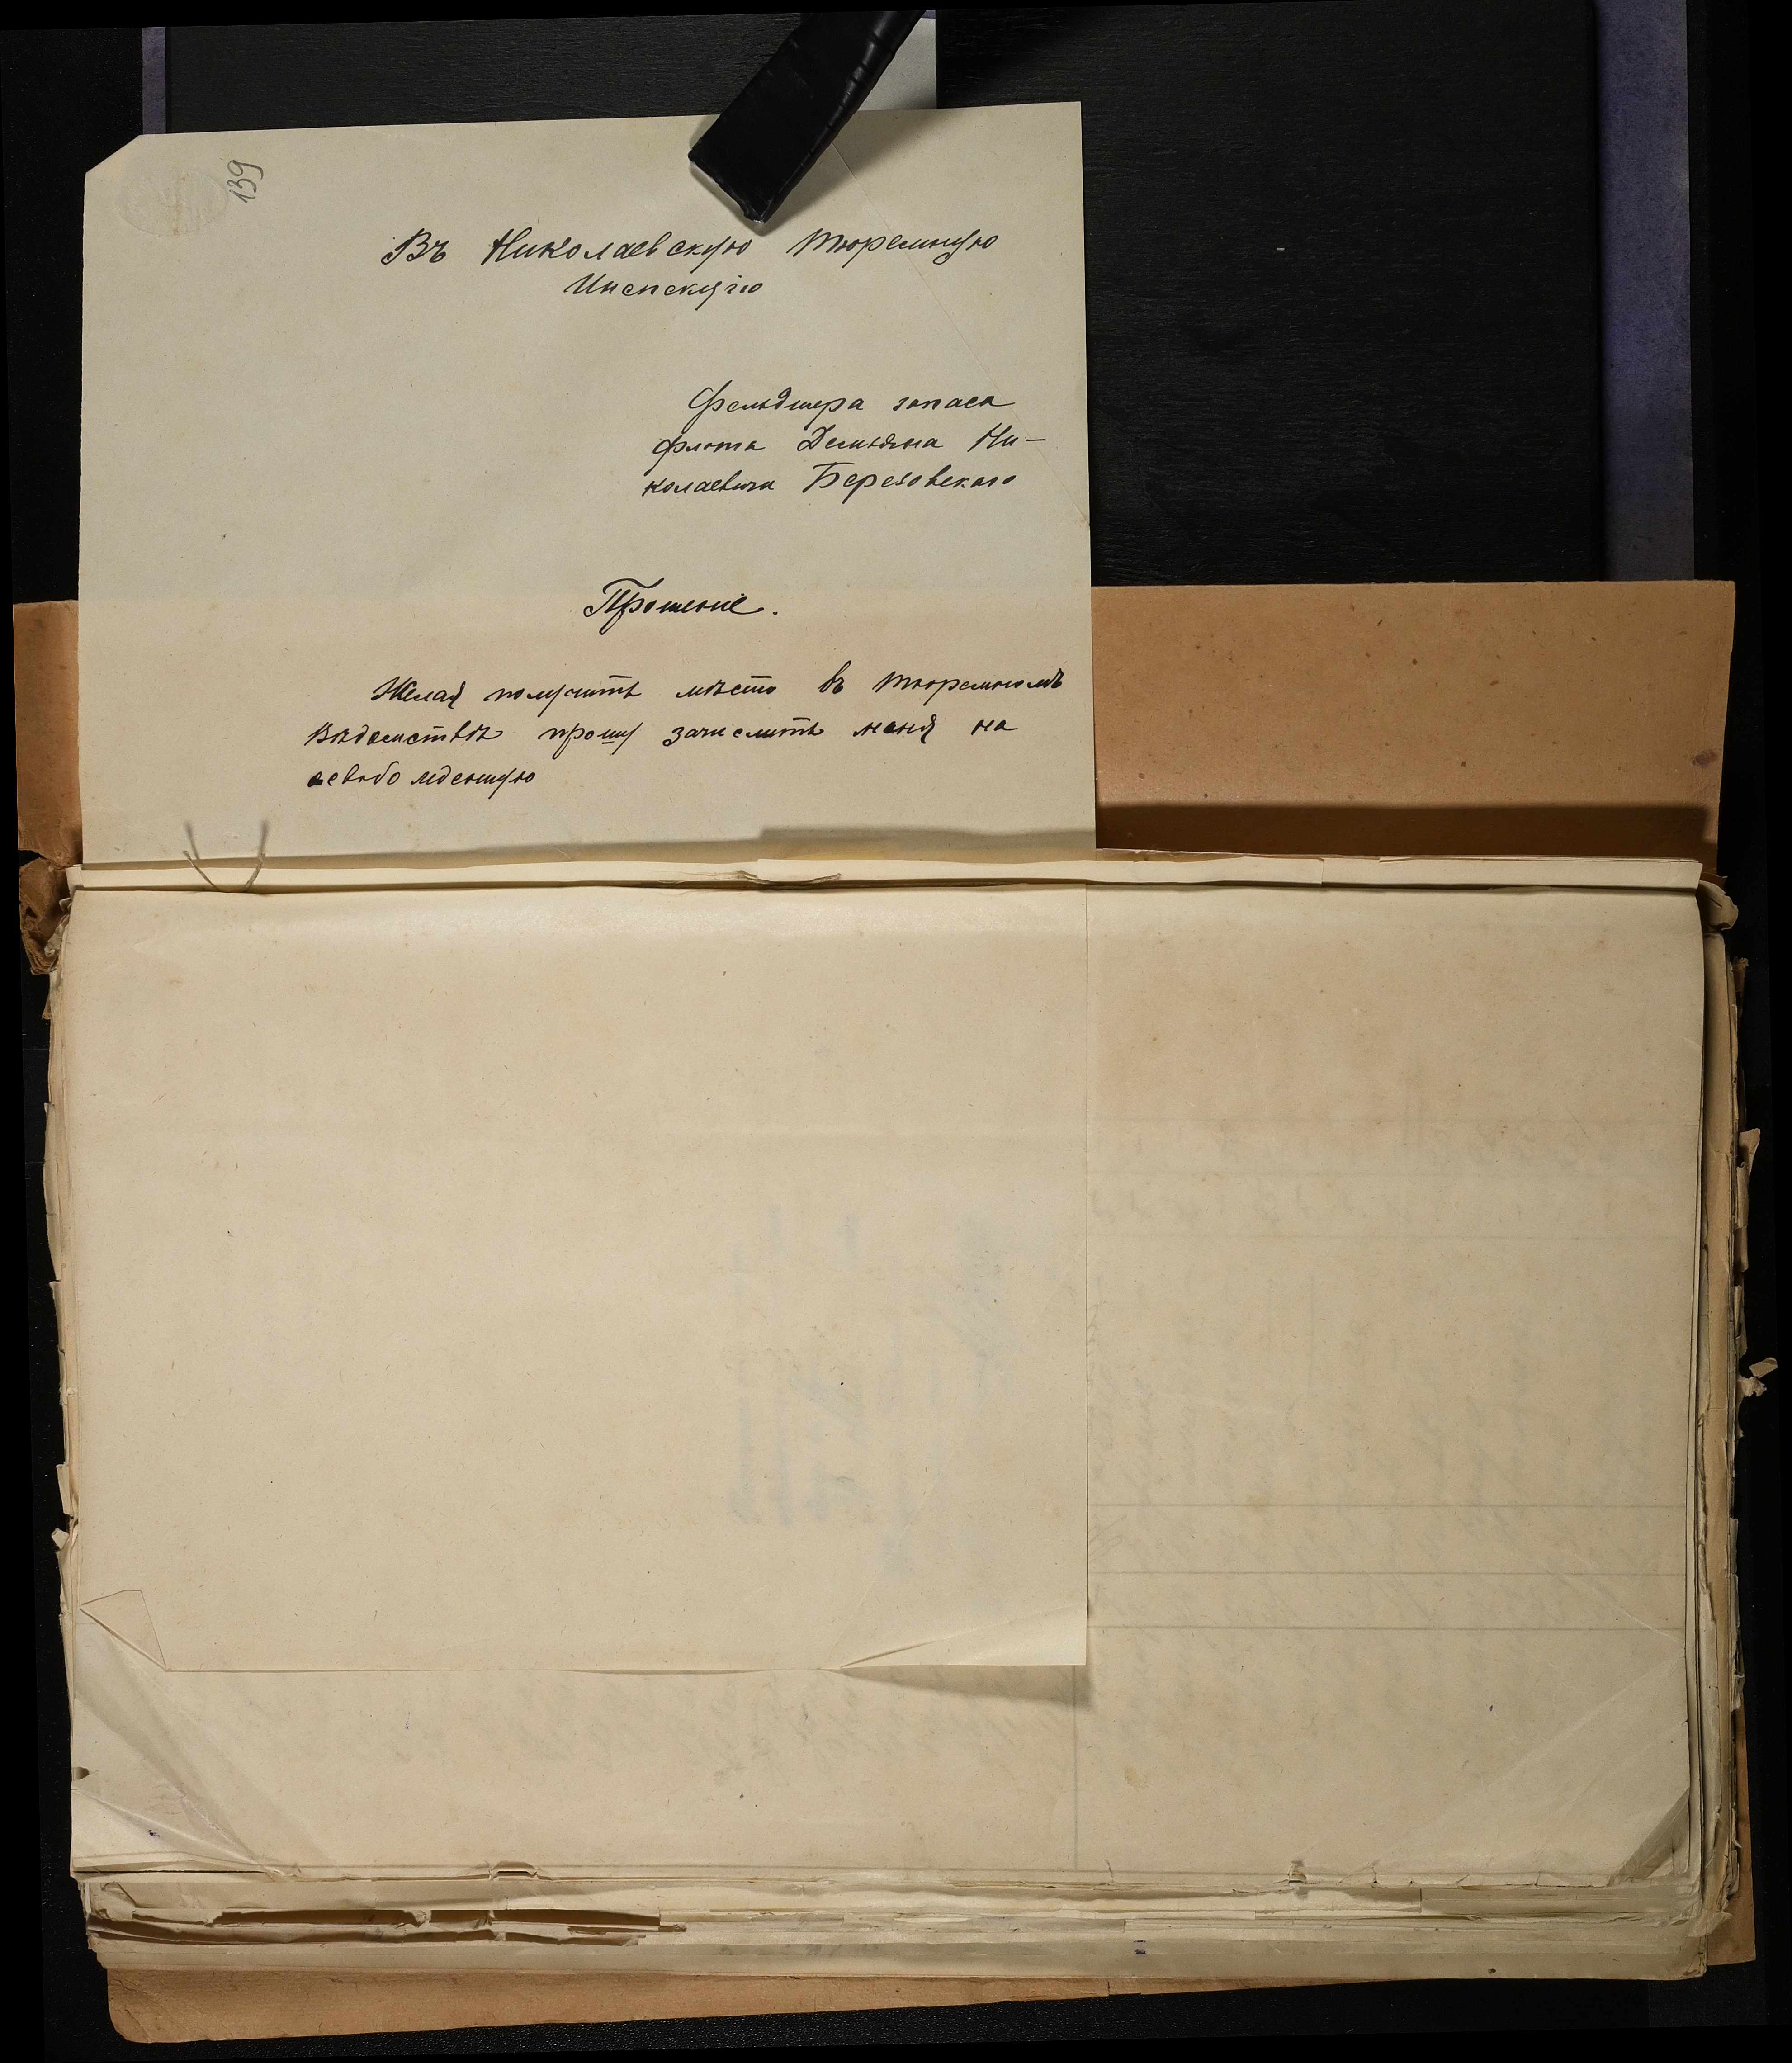 139
Въ Николаевскую тюремную
Инспекцію
Фельдшера запаса
флота Демьяна Ни-
колаевича Березовскаго
Прошеніе.
Желая получить мѣсто въ тюремномъ
Вѣдомствѣ прошу зачислить меня на
освобожденную